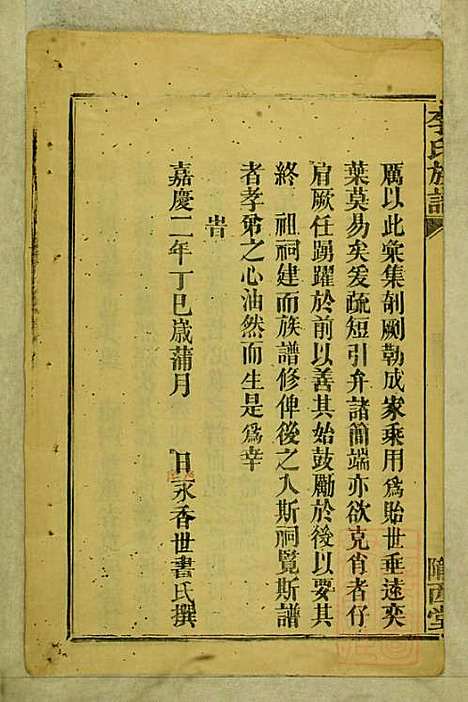 李氏族譜
隴西堂
厲以此衆集剞劂勒成家乘用爲貽世垂遠奕
葉莫易矣爰疏短引弁諸簡端亦欲克肖者仔
肩厥任踴躍於前以善其始鼓勵於後以要其
終 祖祠建而族譜修俾後之入斯祠覽斯譜
者孝弟之心油然而生是爲幸
旹
嘉慶二年丁巳歲蒲月 日永香世書氏撰